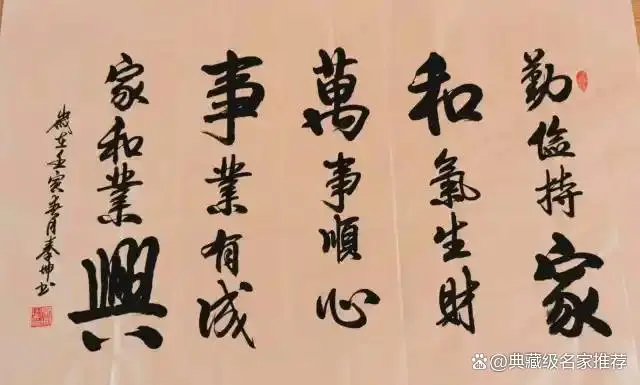 勤儉持家
和氣生財
萬事順心
事業有成
家和業興
歲在壬寅吾月秦坤书
@典藏级名家推荐